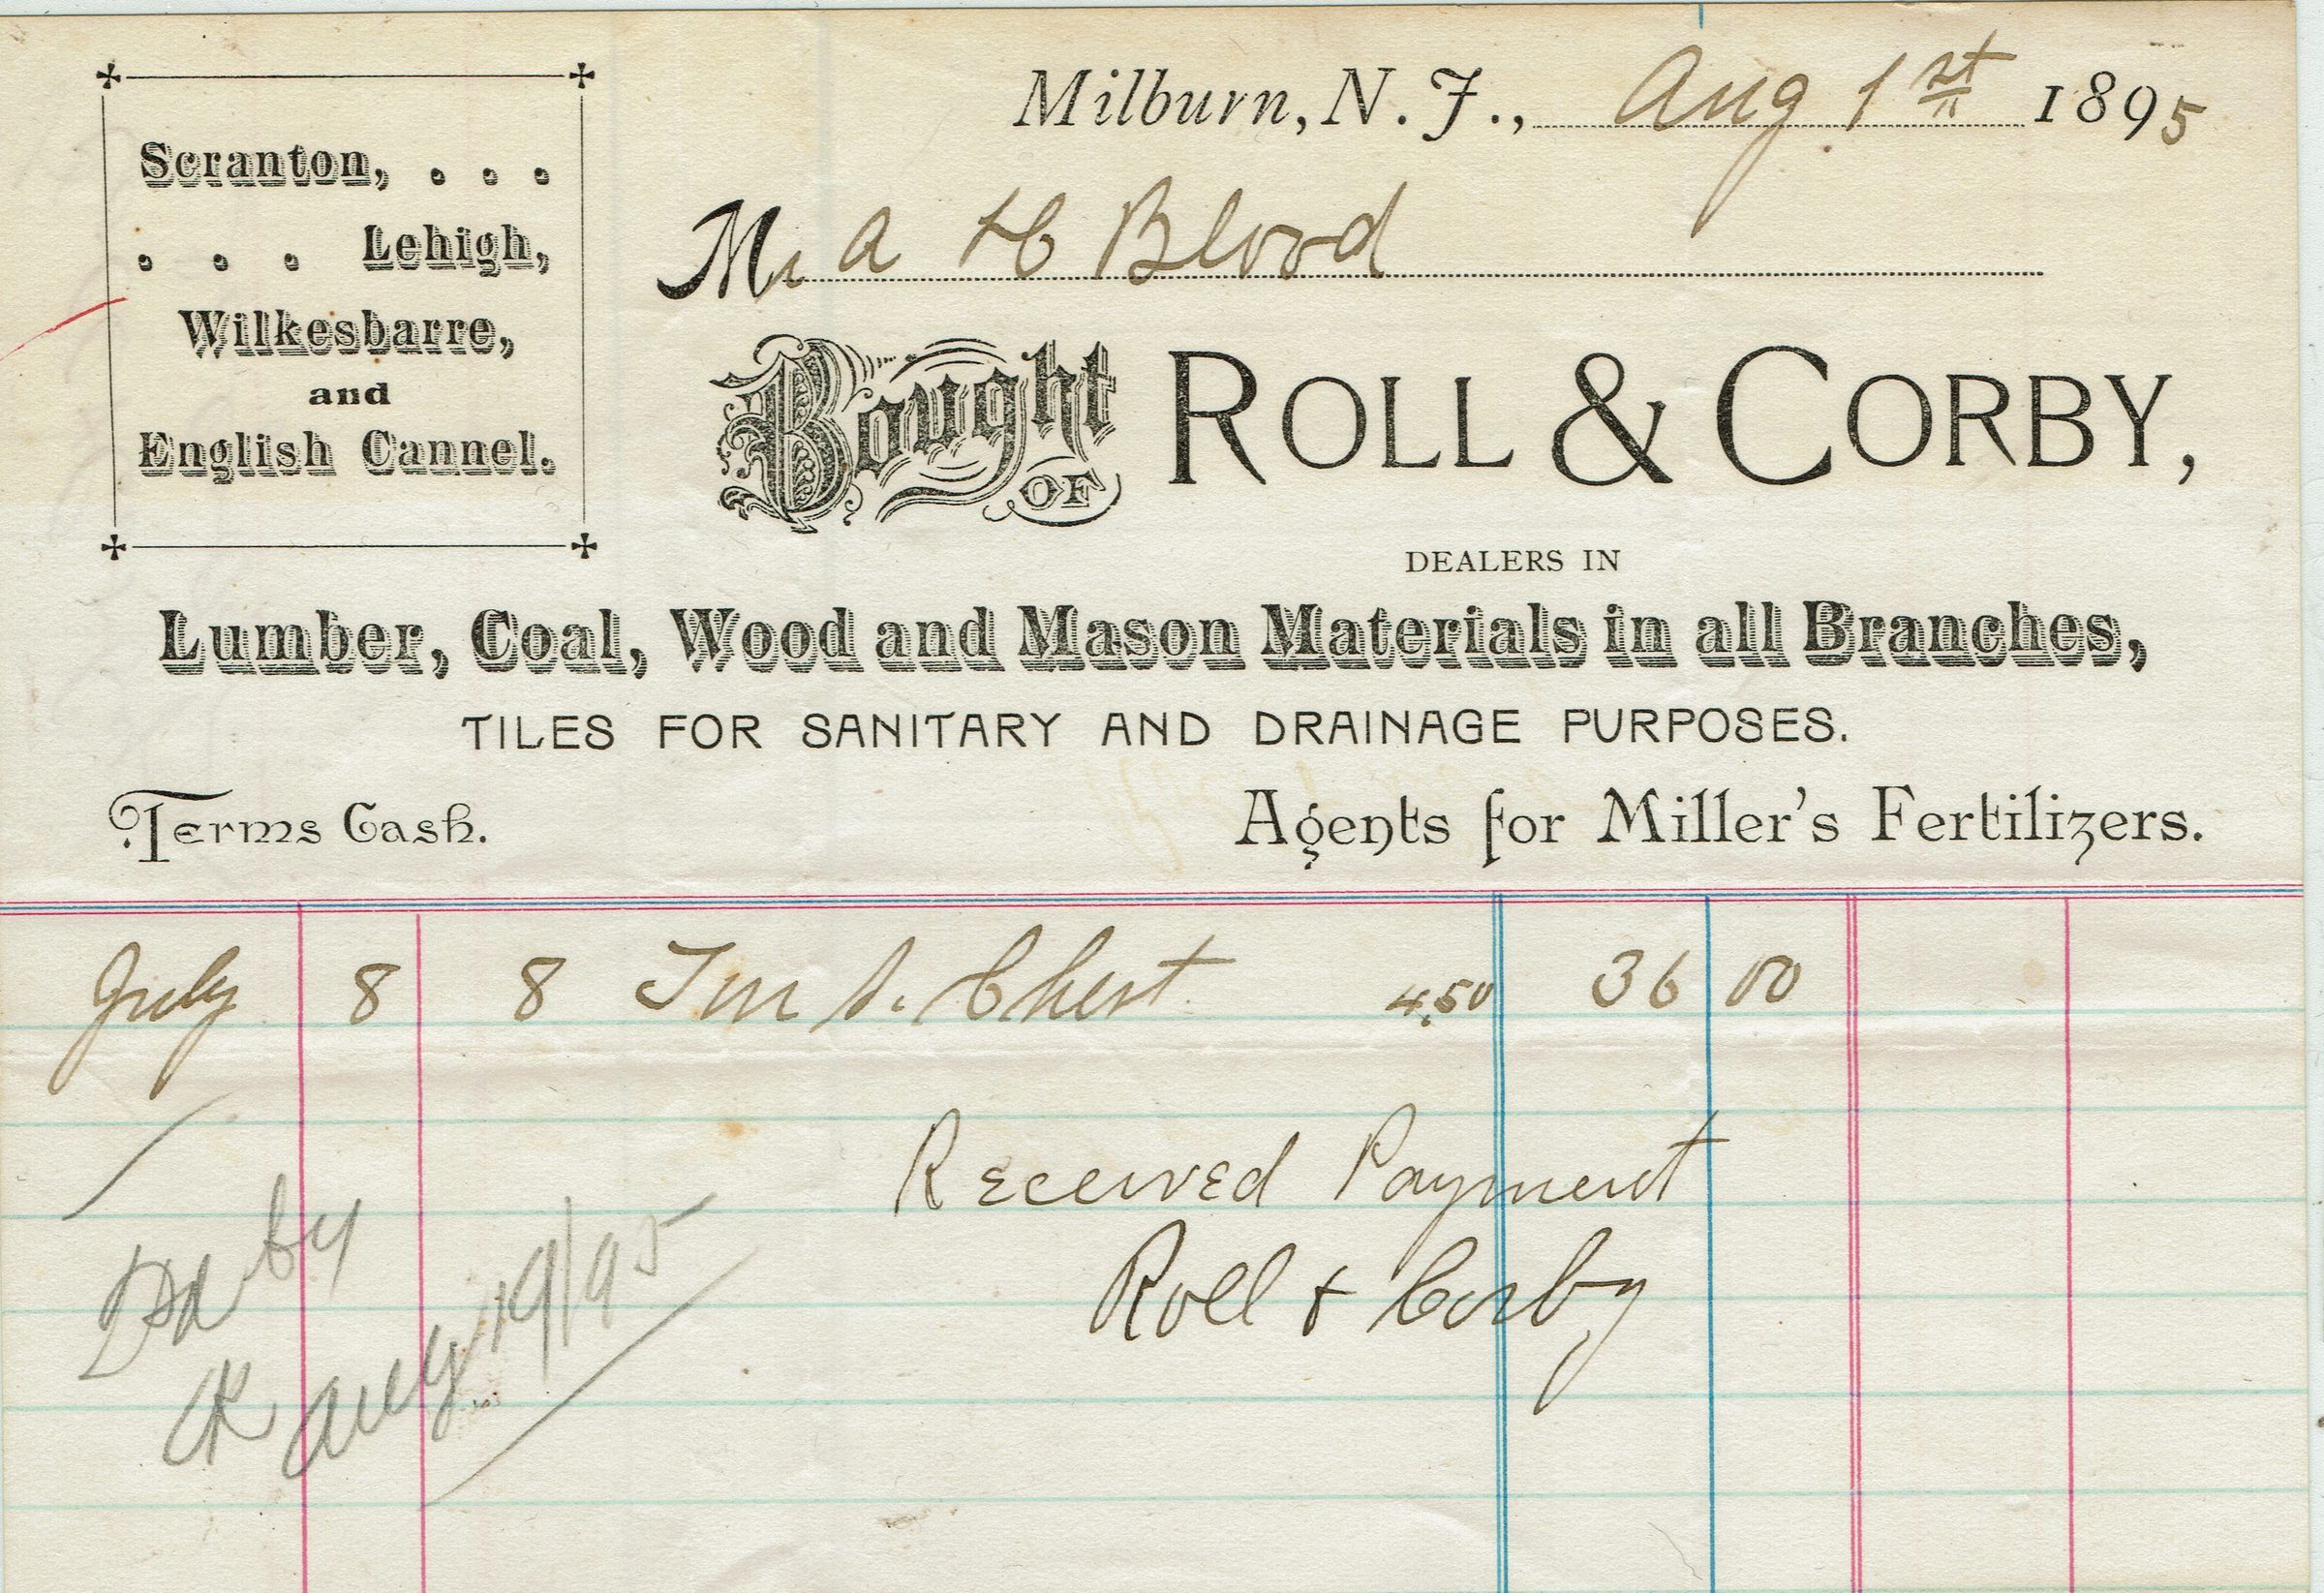 Milburn, N. J., Aug 1st 1895
Scranton, . . .
. . . Lehigh,
Wilkesbarre,
and
English Cannel.
Mr A H Blood
Bought OF ROLL & CORBY,
DEALERS IN
Lumber, Coal, Wood and Mason Materials in all Branches,
TILES FOR SANITARY AND DRAINAGE PURPOSES.
Terms Cash.
Agents for Miller's Fertilizers.
July 8 8 Ton S. Chest 4.50 36 00
Received Payment
Roll & Corby
Pd by
CK Aug 19/95